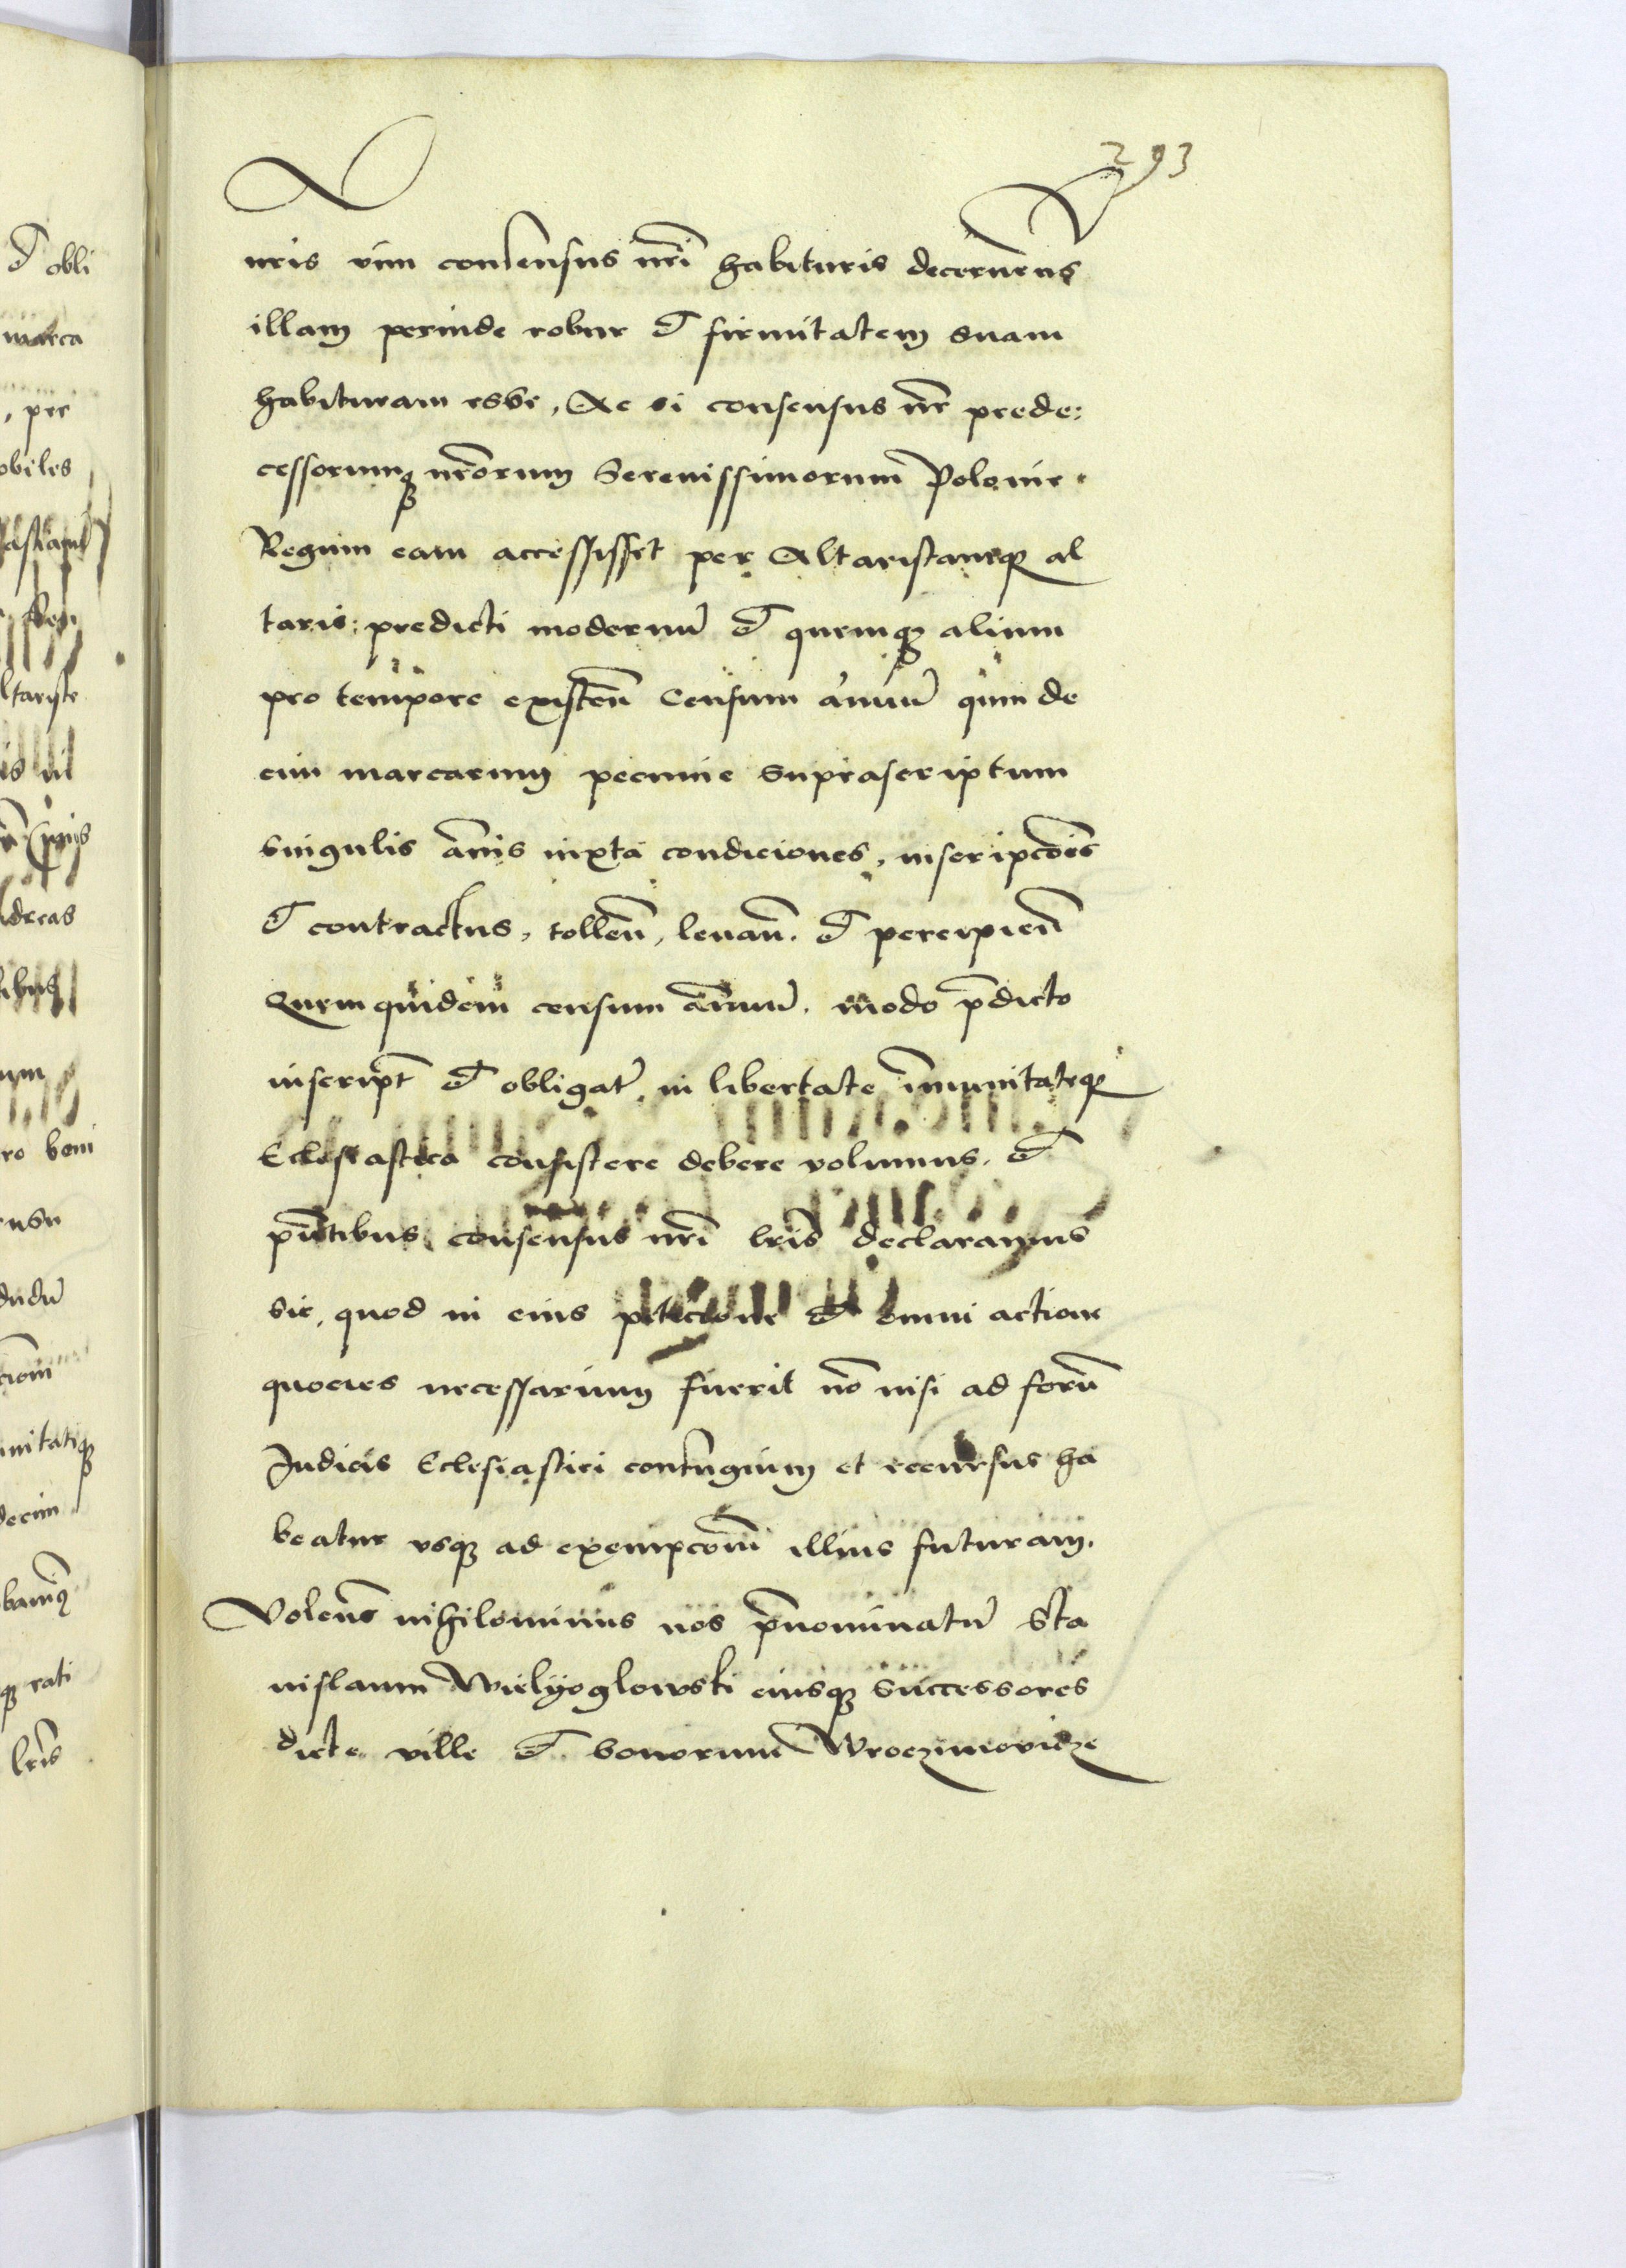 293
nris vim consensus nr̃i habituris decernens
illam perinde robur et firmitatem suam
habituram esse, Ac si consensus nr̃ prede:
cessorumq nr̃orum Serenissimorum Polonie
Regum eam accessisset per Altaristamq al
taris predicti modernũ et quemq alium
pro tempore existeñ Censum ãnuũ quin de
cim marcarum pecunie suprascriptum
singulis ãnis iuxta condiciones, inscripcões
et contractus, tolleñ, leuañ. et percipieñ
Quemquidem censum ãnuũ. modo p̃dicto
inscript̃ et obligat̃. in libertate im̃unitateq
Eclesiastica consistere debere volumus. et
p̃ntibus consensus nr̃i lr̃is declaramus
sic, quod in eius petitione et omni actione
quocies necessarium fuerit nõ nisi ad forũ
Judicis Eclesiastici confugium et recursus ha
beatur vsq ad exempcõem illius futuram.
Volens nihilominus nos p̃nominatũ Sta
nislaum Wielyoglowski eiusq successores
dicte ville et bonorum Wroczimovicze
et obli
marca
, per
obiles
ltariste
dreas
ro boni
ensu
dudũ
nitatiq
decim
q rati
lr̃is